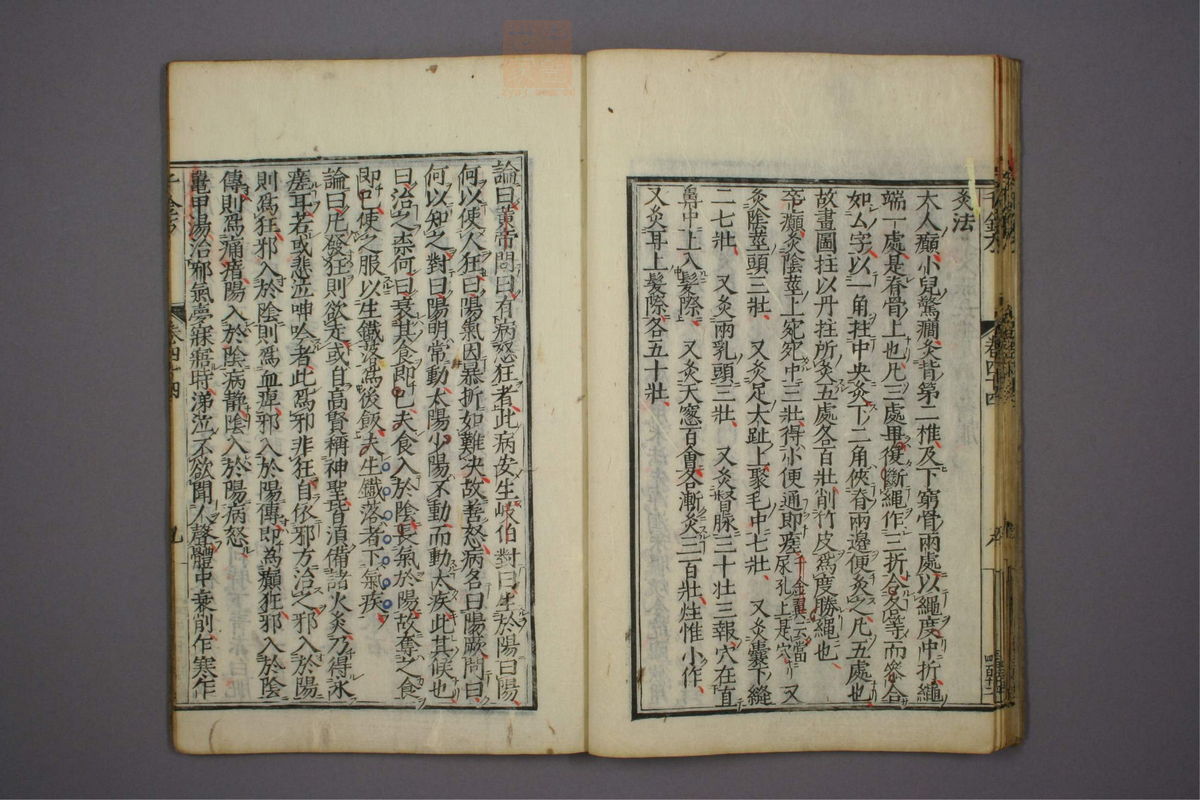 灸法
大人癲小兒驚癇灸背第二椎及下窮骨兩處以繩度中折繩
端一處是脊骨上也凡三處畢復斷繩作三折令各等而參合
如厶字以一角拄中央灸下二角俠脊兩邊便灸之凡五處也
故畫圖拄以丹拄所灸五處各百壯削竹皮爲度勝繩也
卒癲灸陰莖上宛宛中三壯得小便通即瘥千金翼云當尿孔上是穴又
灸陰莖頭三壯 又灸足大趾上聚毛中七壯 又灸囊下縫
二七壯 又灸兩乳頭三壯 又灸督脉三十壯三報穴在直
鼻中上入髮際 又灸天窓百會各漸灸三百壯炷惟小作
又灸耳上髮際各五十壯
卷四十四
九
論曰黃帝問曰有病怒狂者此病安生岐伯對曰生於陽曰陽
何以使人狂曰陽氣因暴折如難决故善怒病名曰陽厥問曰
何以知之對曰陽明常動太陽少陽不動而動太疾此其候也
曰治之柰何曰衰其食即已夫食入於陰長氣於陽故奪之食
即已使之服以生鐵落爲後飯夫生鐵落者下氣疾
論曰凡發狂則欲走或自高賢稱神聖皆須備諸火灸乃得永
瘥耳若或悲泣呻吟者此爲邪非狂自依邪方治之邪入於陽
則爲狂邪入於陰則爲血痺邪入於陽傳即爲癲狂邪入於陰
傳則爲痛瘖陽入於陰病静陰入於陽病怒
鼈甲湯治邪氣夢寐寤時涕泣不欲聞人聲體中痠削乍寒乍
卷四十四
九